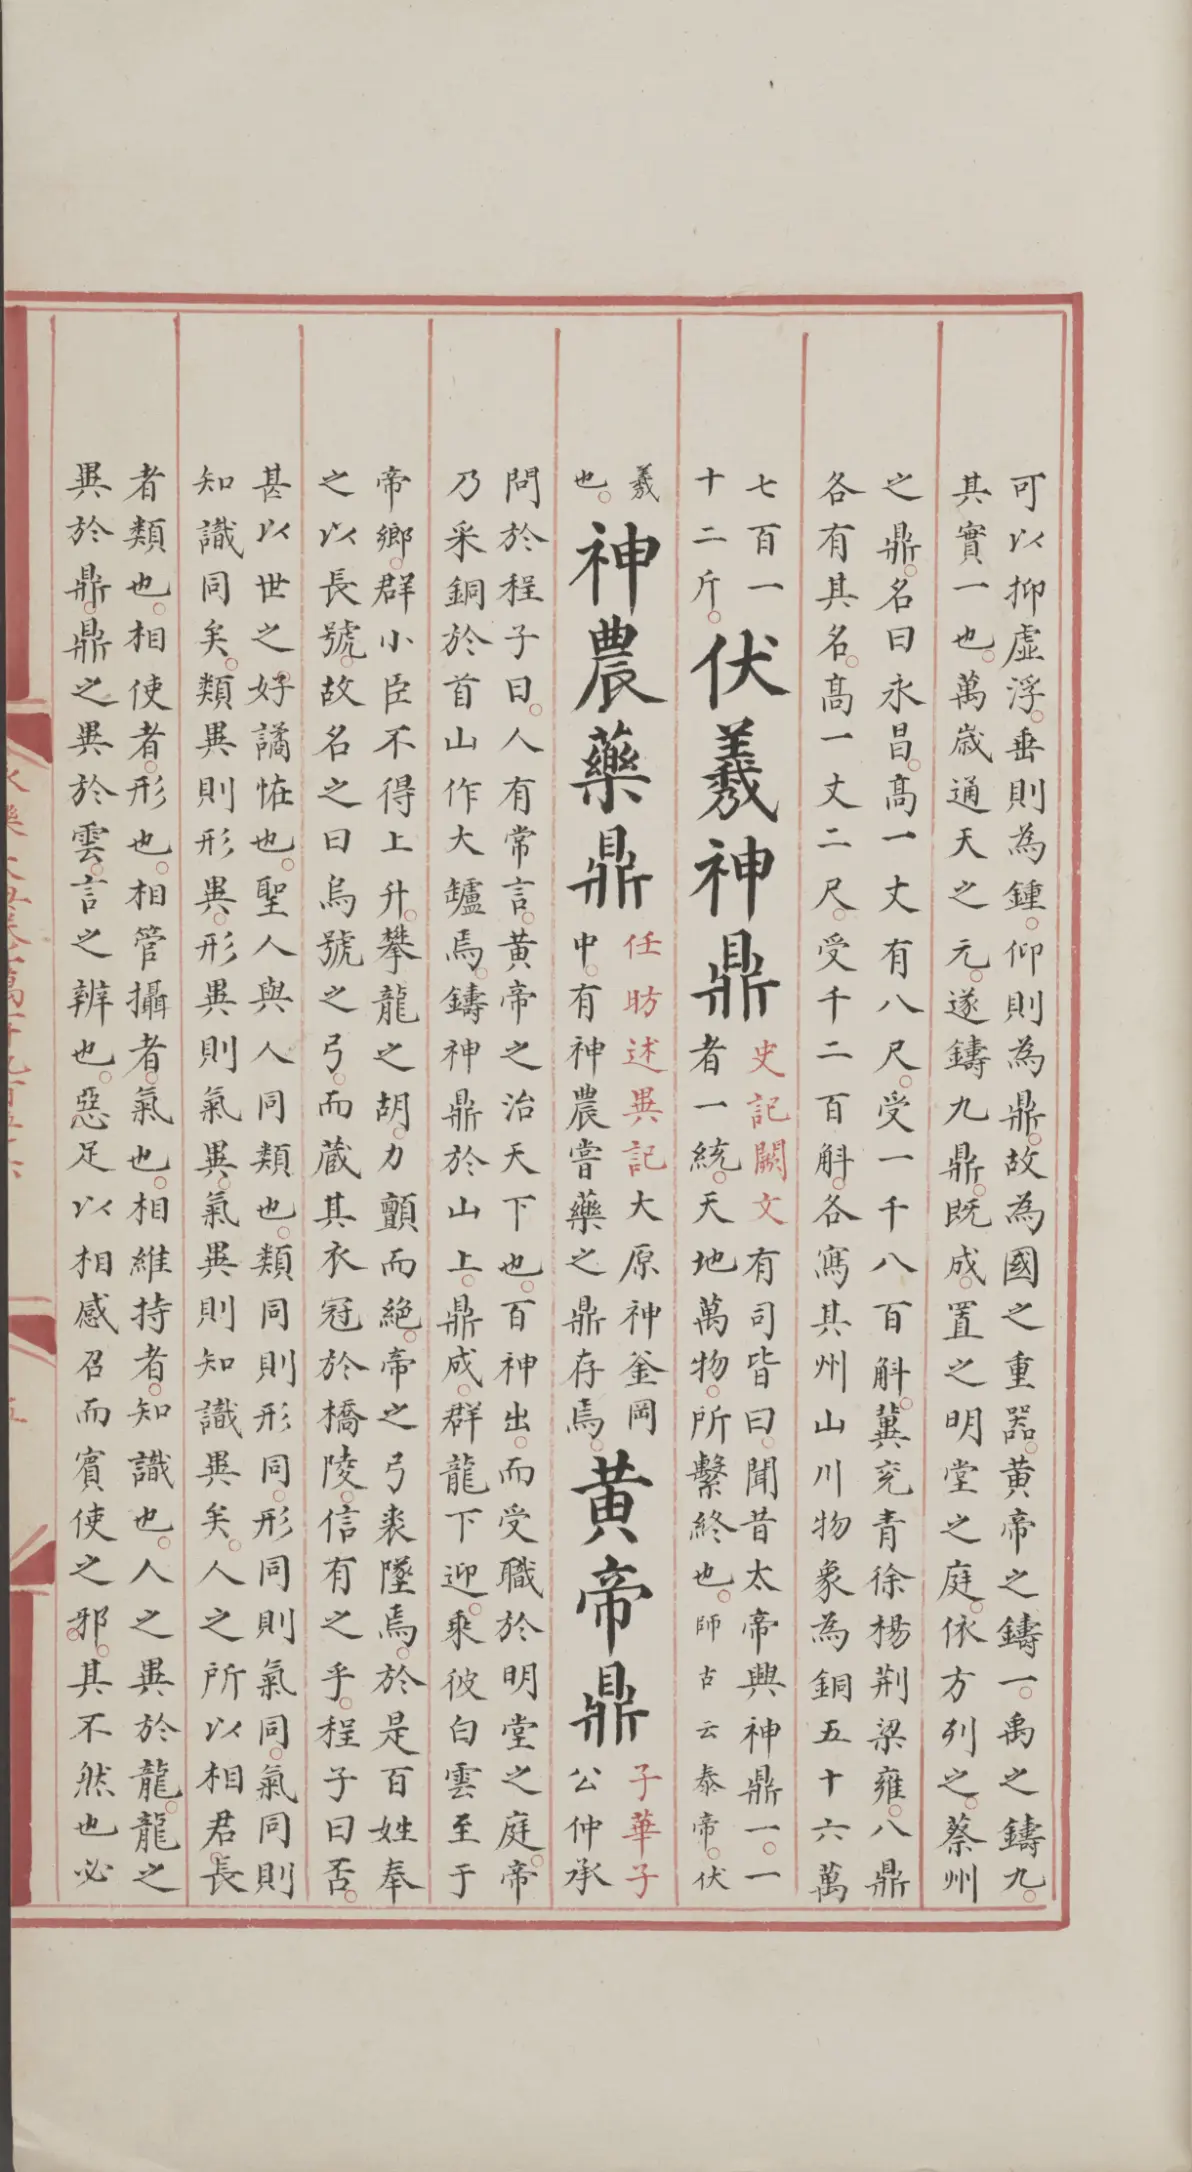 可以抑虛浮垂則為鍾仰則為鼎故為國之重器黃帝之鑄一禹之鑄九
其實一也萬歲通天之元遂鑄九鼎既成置之明堂之庭依方列之蔡州
之鼎名曰永昌高一丈有八尺受一千八百斛冀兗青徐楊荆梁雍八鼎
各有其名高一丈二尺受千二百斛各寫其州山川物象為銅五十六萬
七百一
十二斤
伏羲神鼎
史記闕文有司皆曰聞昔太帝興神鼎一一
者一統天地萬物所繫終也師古云泰帝伏
羲
也
神農藥鼎
任昉述異記大原神釜岡
中有神農嘗藥之鼎存焉
黃帝鼎
子華子
公仲承
問於程子曰人有常言黃帝之治天下也百神出而受職於明堂之庭帝
乃采銅於首山作大罏焉鑄神鼎於山上鼎成群龍下迎乘彼白雲至于
帝鄉群小臣不得上升攀龍之胡力顫而絕帝之弓裘墜焉於是百姓奉
之以長號故名之曰烏號之弓而蔵其衣冠於橋陵信有之乎程子曰否
甚以世之好譎恠也聖人與人同類也類同則形同形同則氣同氣同則
知識同矣類異則形異形異則氣異氣異則知識異矣人之所以相君長
者類也相使者形也相管攝者氣也相維持者知識也人之異於龍龍之
異於鼎鼎之異於雲言之辨也惡足以相感召而賓使之邪其不然也必